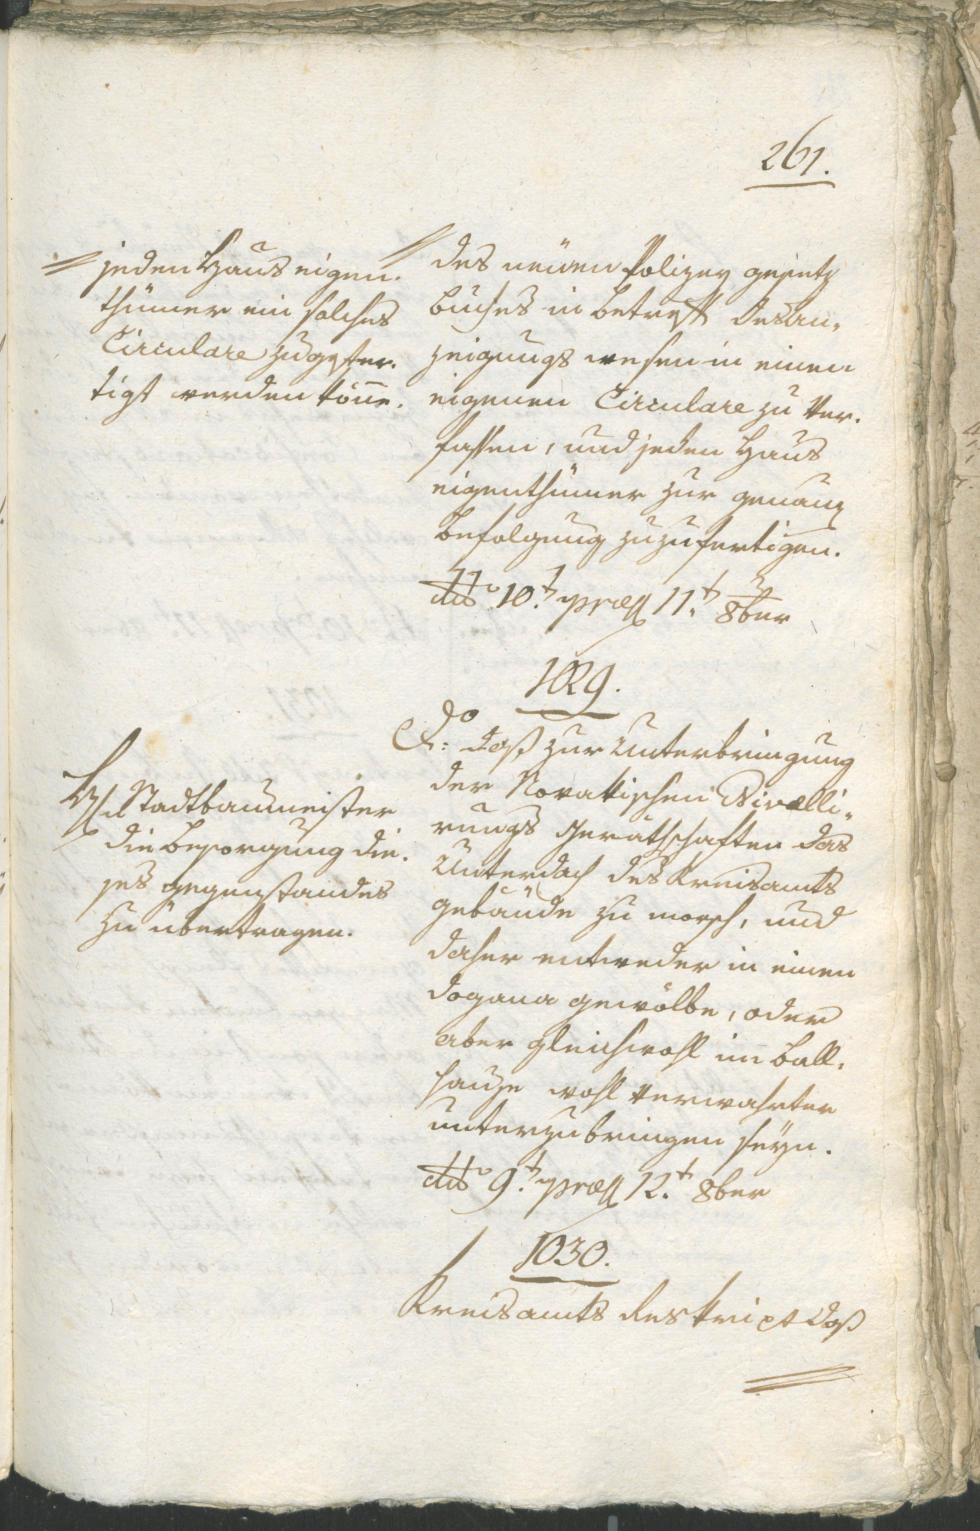 261.
jeden Haus eigen-
thümer ein solches
Circulare zugefer-
tigt werden köñe.
des neuen Polizey gesetz
buches in betreff des An-
zeigungs wesen in einem
eigenen Circulare zu ver-
fassen, und jeden Haus
eigenthümer zur genauen
befolgung zuzufertigen.
ddo 10t præs 11t 8ber
1029.
do daß zur Unterbringung
der Novakischen Nivelli-
rungs Geräthschaften das
Unterdach des Kreisamts
gebäude zu morsch, und
daher entweder in einem
dogana gewölbe, oder
aber gleichwohl im Ball-
hause wohl verwahrter
unterzubringen seyn.
ddo 9t præs 12t 8ber
Stadtbaumeister
die besorgung die-
ses gegenstandes
zu übertragen.
1030.
Kreisamts Reskript daß